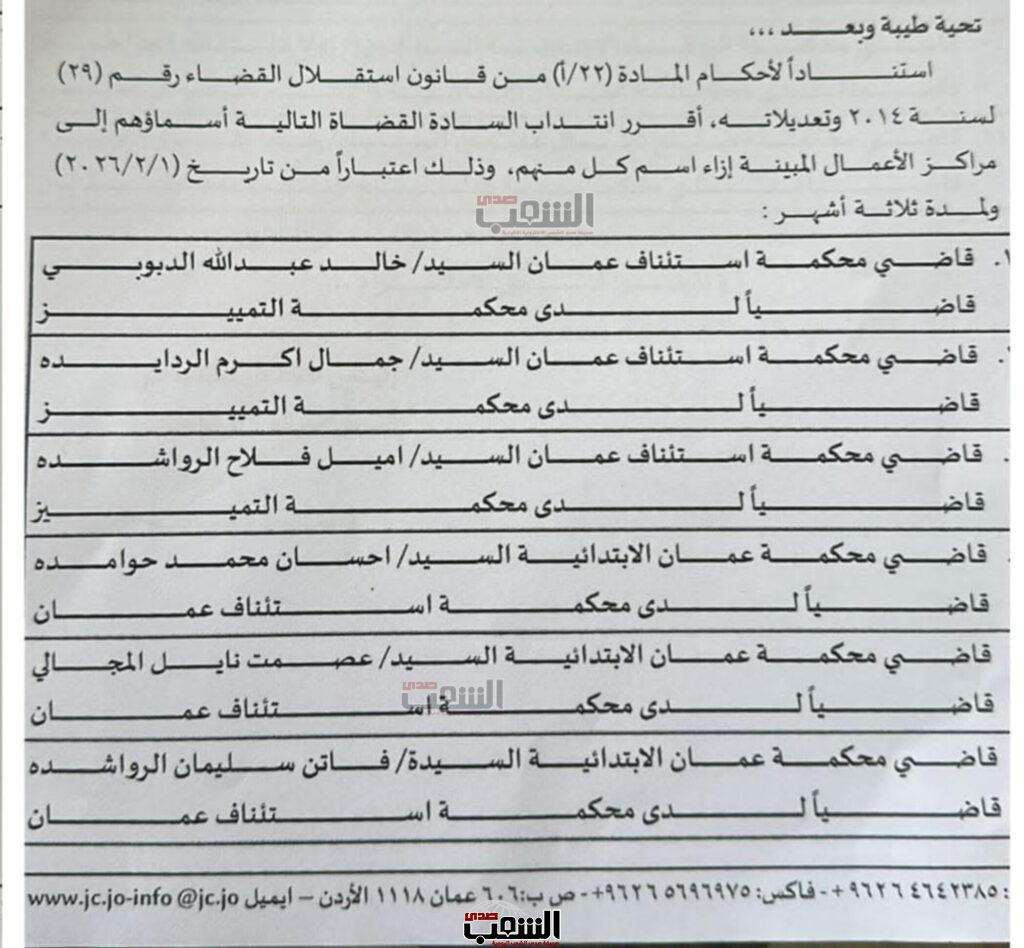 تحية طيبة وبعد ،،،
استناداً لأحكام المادة (٢٢/أ) من قانون استقلال القضاء رقم (٢٩)
لسنة ٢٠١٤ وتعديلاته، أقرر انتداب السادة القضاة التالية أسماؤهم إلى
مراكز الأعمال المبينة إزاء اسم كل منهم، وذلك اعتباراً من تاريخ (٢٠٢٦/٢/١)
ولمدة ثلاثة أشهر :
صدى الشعب
قاضي محكمة استئناف عمان السيد/ خالد عبدالله الدبوبي
قاضياً لدى محكمة التمييز
قاضي محكمة استئناف عمان السيد/ جمال اكرم الردايده
قاضياً لدى محكمة التمييز
قاضي محكمة استئناف عمان السيد/ اميل فلاح الرواشده
قاضياً لدى محكمة التمييز
قاضي محكمة عمان الابتدائية السيد/ احسان محمد حوامده
قاضياً لدى محكمة استئناف عمان
قاضي محكمة عمان الابتدائية السيد/ عصمت نايل المجالي
صدى الشعب
قاضياً لدى محكمة استئناف عمان
قاضي محكمة عمان الابتدائية السيدة/ فاتن سليمان الرواشده
قاضياً لدى محكمة استئناف عمان
: ٩٦٢٦ ٤٦٤٢٣٨٥+ - فاكس: ٩٦٢٦ ٥٦٩٦٩٧٥+ - ص ب: ٦٠٦ عمان ١١١٨ الأردن – ايميل www.jc.jo-info @jc.jo
صدى الشعب